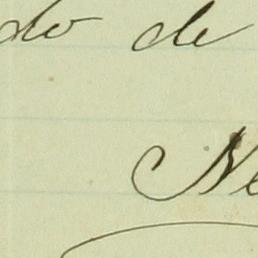 do de
Ne